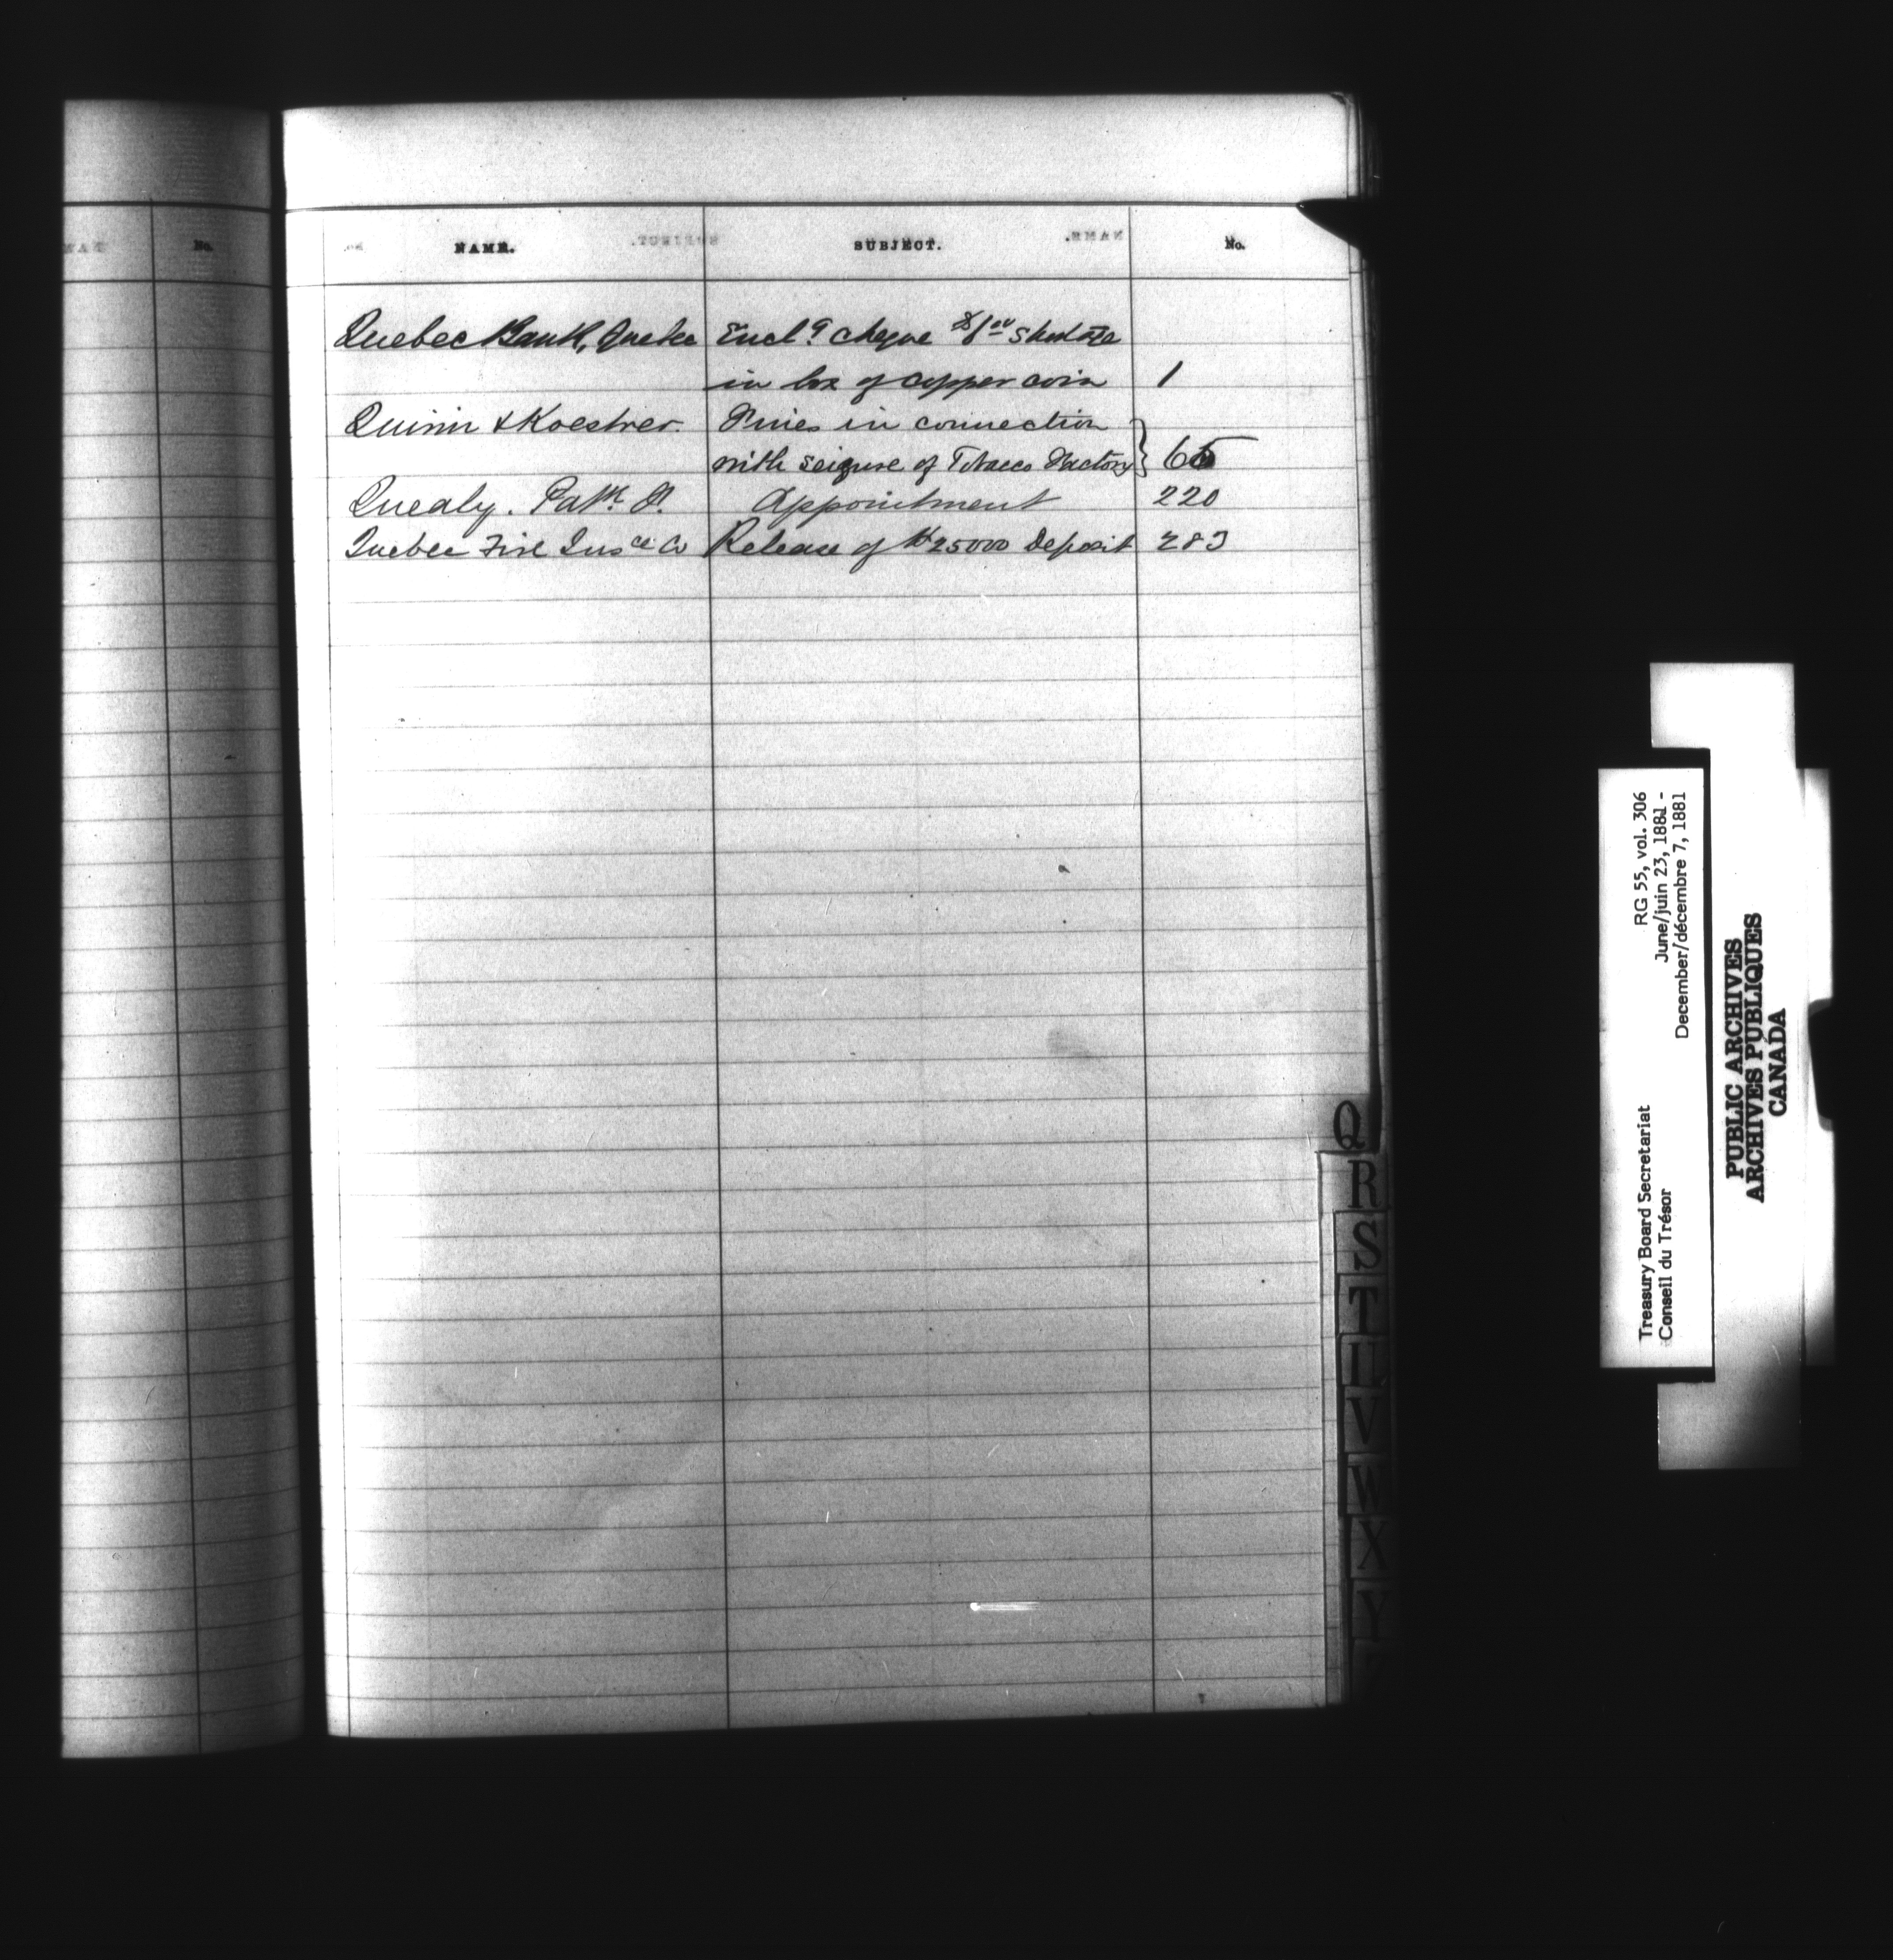 NAME. SUBJECT. No.
Quebec Bank, Quebec Encl^g cheque $1^00 shortage
in box of copper coin 1
Quinn & Koestner. Fines in connection
with seizure of Tobacco Factory } 65
Quealy. Pat^k. 220
Appointment
Quebec Fire Ins^ce Co Release of $25000 Deposit 283
Q
R
S
T
U
V
W
X
Y
RG 55, vol. 306
June/juin 23, 1881 -
December/décembre 7, 1881
Treasury Board Secretariat
Conseil du Trésor
PUBLIC ARCHIVES
ARCHIVES PUBLIQUES
CANADA